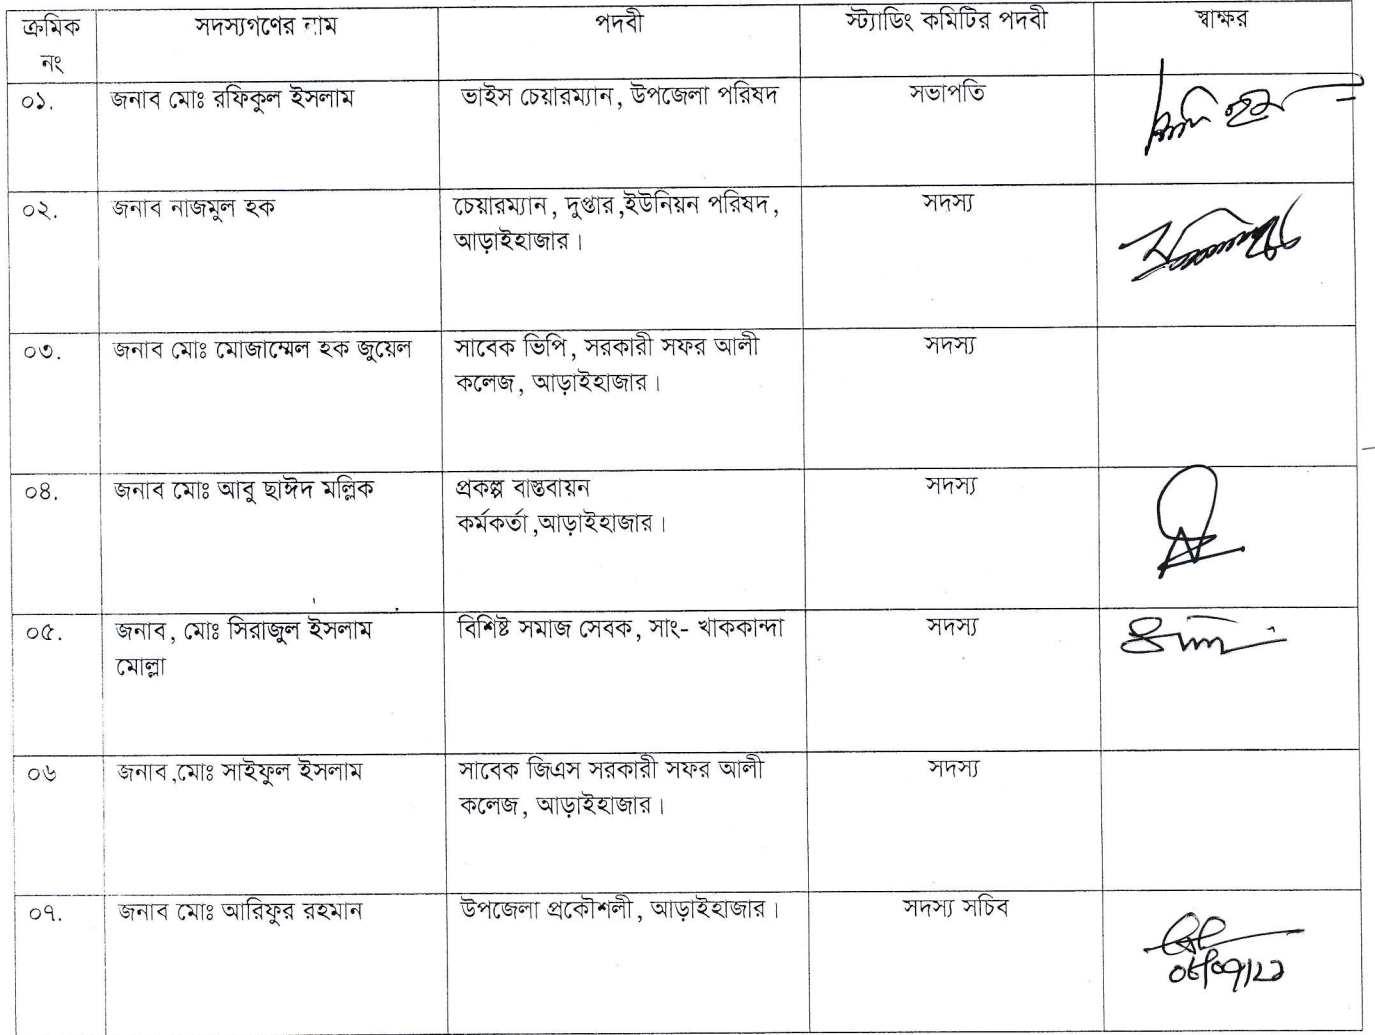 ক্রমিক নং | সদস্যগণের নাম | পদবী | স্ট্যাডিং কমিটির পদবী | স্বাক্ষর
০১. | জনাব মোঃ রফিকুল ইসলাম | ভাইস চেয়ারম্যান, উপজেলা পরিষদ | সভাপতি
০২. | জনাব নাজমুল হক | চেয়ারম্যান, দুপ্তার,ইউনিয়ন পরিষদ, | সদস্য
আড়াইহাজার।
০৩. | জনাব মোঃ মোজাম্মেল হক জুয়েল | সাবেক ভিপি, সরকারী সফর আলী | সদস্য
কলেজ, আড়াইহাজার।
০৪. | জনাব মোঃ আবু ছাঈদ মল্লিক | প্রকল্প বাস্তবায়ন | সদস্য
কর্মকর্তা,আড়াইহাজার।
০৫. | জনাব, মোঃ সিরাজুল ইসলাম | বিশিষ্ট সমাজ সেবক, সাং- খাককান্দা | সদস্য
মোল্লা
০৬ | জনাব,মোঃ সাইফুল ইসলাম | সাবেক জিএস সরকারী সফর আলী | সদস্য
কলেজ, আড়াইহাজার।
০৭. | জনাব মোঃ আরিফুর রহমান | উপজেলা প্রকৌশলী, আড়াইহাজার। | সদস্য সচিব